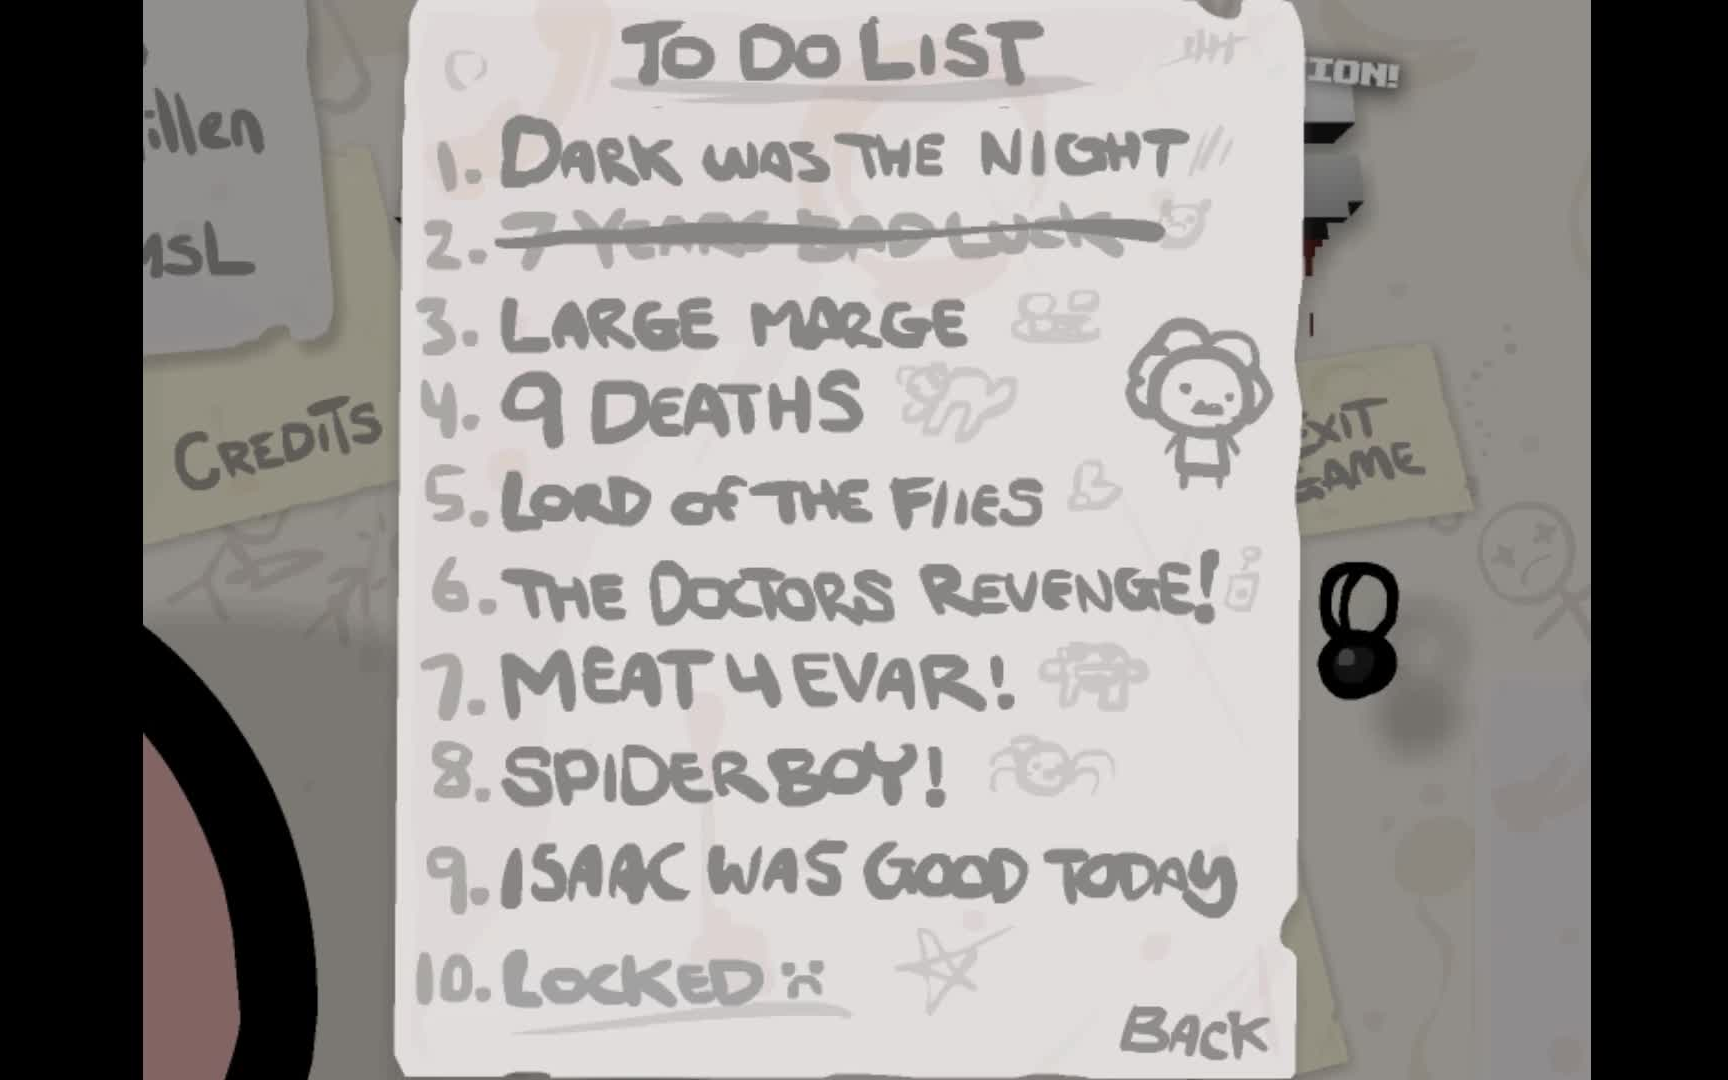 TO DO LIST
1. DARK WAS THE NIGHT
2. 7 YEARS BAD LUCK
3. LARGE MARGE
4. 9 DEATHS
5. LORD of THE FLIES
6. THE DOCTORS REVENGE!
7. MEAT 4 EVAR!
8. SPIDERBOY!
9. ISAAC WAS GOOD TODAY
10. LOCKED
BACK
illen
MSL
CREDITS
ION!
EXIT
GAME